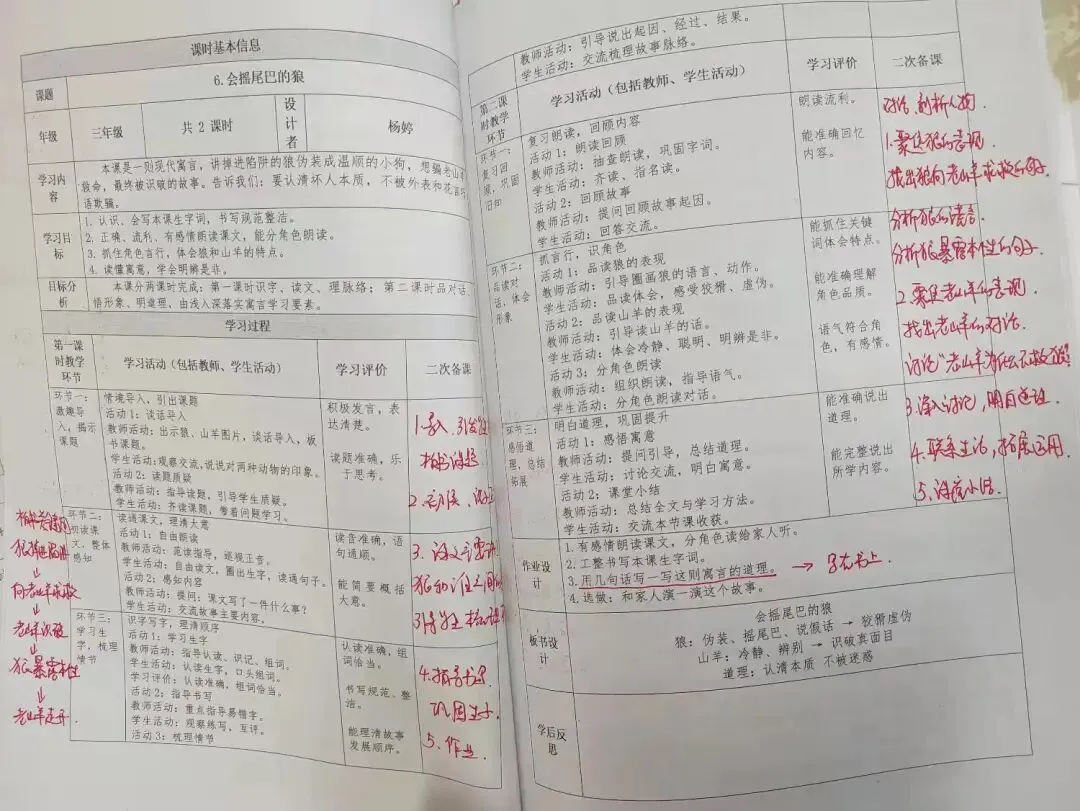 课时基本信息
课题
6.会摇尾巴的狼
年级
三年级
共 2 课时
设计者
杨婷
学习内容
本课是一则现代寓言，讲掉进陷阱的狼伪装成温顺的小狗，想骗老山羊
救命，最终被识破的故事。告诉我们：要认清坏人本质，不被外表和花言巧
语欺骗。
学习目标
1. 认识、会写本课生字词，书写规范整洁。
2. 正确、流利、有感情朗读课文，能分角色朗读。
3. 抓住角色言行，体会狼和山羊的特点。
4. 读懂寓意，学会明辨是非。
目标分析
本课分两课时完成：第一课时识字、读文、理脉络；第二课时品对话、
悟形象、明道理，由浅入深落实寓言学习要素。
学习过程
第一课时教学环节
学习活动（包括教师、学生活动）
学习评价
二次备课
环节一：激趣导入，揭示课题
情境导入，引出课题
活动 1：谈话导入
教师活动：出示狼、山羊图片，谈话导入，板
书课题。
学生活动：观察交流，说说对两种动物的印象。
活动 2：读题质疑
教师活动：指导读题，引导学生质疑。
学生活动：齐读课题，带着问题学习。
积极发言，表达清楚。
读题准确，乐于思考。
板书课题
环节二：初读课文，整体感知
读通课文，理清大意
活动 1：自由朗读
教师活动：范读指导，巡视正音。
学生活动：自由读文，圈出生字，读通句子。
活动 2：感知内容
教师活动：提问：课文写了一件什么事？
学生活动：交流故事主要内容。
读音准确，语句通顺。
能简要概括大意。
向老山羊求救
↓
老山羊识破
↓
狼暴露本性
↓
老山羊走开
环节三：学习生字，梳理情节
识字写字，理清顺序
活动 1：学习生字
教师活动：指导认读、识记、组词。
学生活动：认读生字，口头组词。
学习评价：认读准确，组词恰当。
活动 2：指导书写
教师活动：重点指导易错字。
学生活动：观察练写，互评。
活动 3：梳理情节
认读准确，组词恰当。
书写规范、整洁。
能理清故事发展顺序。
4.指导书写
巩固生字
5、作业
教师活动：引导说出起因、经过、结果。
学生活动：交流梳理故事脉络。
第二课时教学环节
学习活动（包括教师、学生活动）
学习评价
二次备课
环节一：复习回顾，巩固旧知
复习朗读，回顾内容
活动 1：朗读回顾
教师活动：抽查朗读，巩固字词。
学生活动：齐读、指名读。
活动 2：回顾故事
教师活动：提问回顾故事起因。
学生活动：回答交流。
朗读流利。
能准确回忆内容。
对话，剖析人物.
1.聚焦狼的表现
找出狼向老山羊求救的句子
环节二：品读对话，体会形象
抓言行，识角色
活动 1：品读狼的表现
教师活动：引导圈画狼的语言、动作。
学生活动：品读体会，感受狡猾、虚伪。
活动 2：品读山羊的表现
教师活动：引导读山羊的话。
学生活动：体会冷静、聪明、明辨是非。
活动 3：分角色朗读
教师活动：组织朗读，指导语气。
学生活动：分角色朗读对话。
能抓住关键词体会特点。
能准确理解角色品质。
语气符合角色，有感情。
分析狼的谎言.
分析狼暴露本性的句子.
2.聚焦老山羊的表现.
找出老山羊的对话.
讨论“老山羊为什么不救狼”
环节三：感悟道理，总结拓展
明白道理，巩固提升
活动 1：感悟寓意
教师活动：提问引导，总结道理。
学生活动：讨论交流，明白寓意。
活动 2：课堂小结
教师活动：总结全文与学习方法。
学生活动：交流本节课收获。
能准确说出道理。
能完整说出所学内容。
3.深入讨论，明白道理.
4.联系生活，拓展运用.
5、课堂小结.
作业设计
1. 有感情朗读课文，分角色读给家人听。
2. 工整书写本课生字词。
3. 用几句话写一写这则寓言的道理。 → 写在书上.
4. 选做：和家人演一演这个故事。
板书设计
会摇尾巴的狼
狼：伪装、摇尾巴、说假话 → 狡猾虚伪
山羊：冷静、辨别 → 识破真面目
道理：认清本质 不被迷惑
学后反思